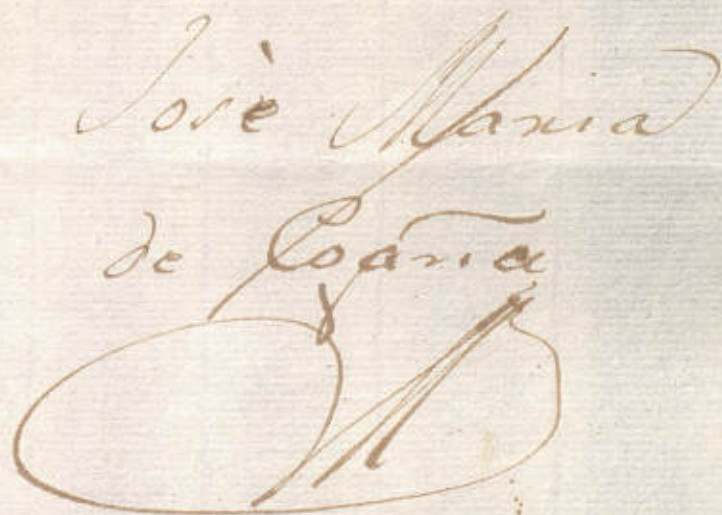 Josè Maria
de Loaña